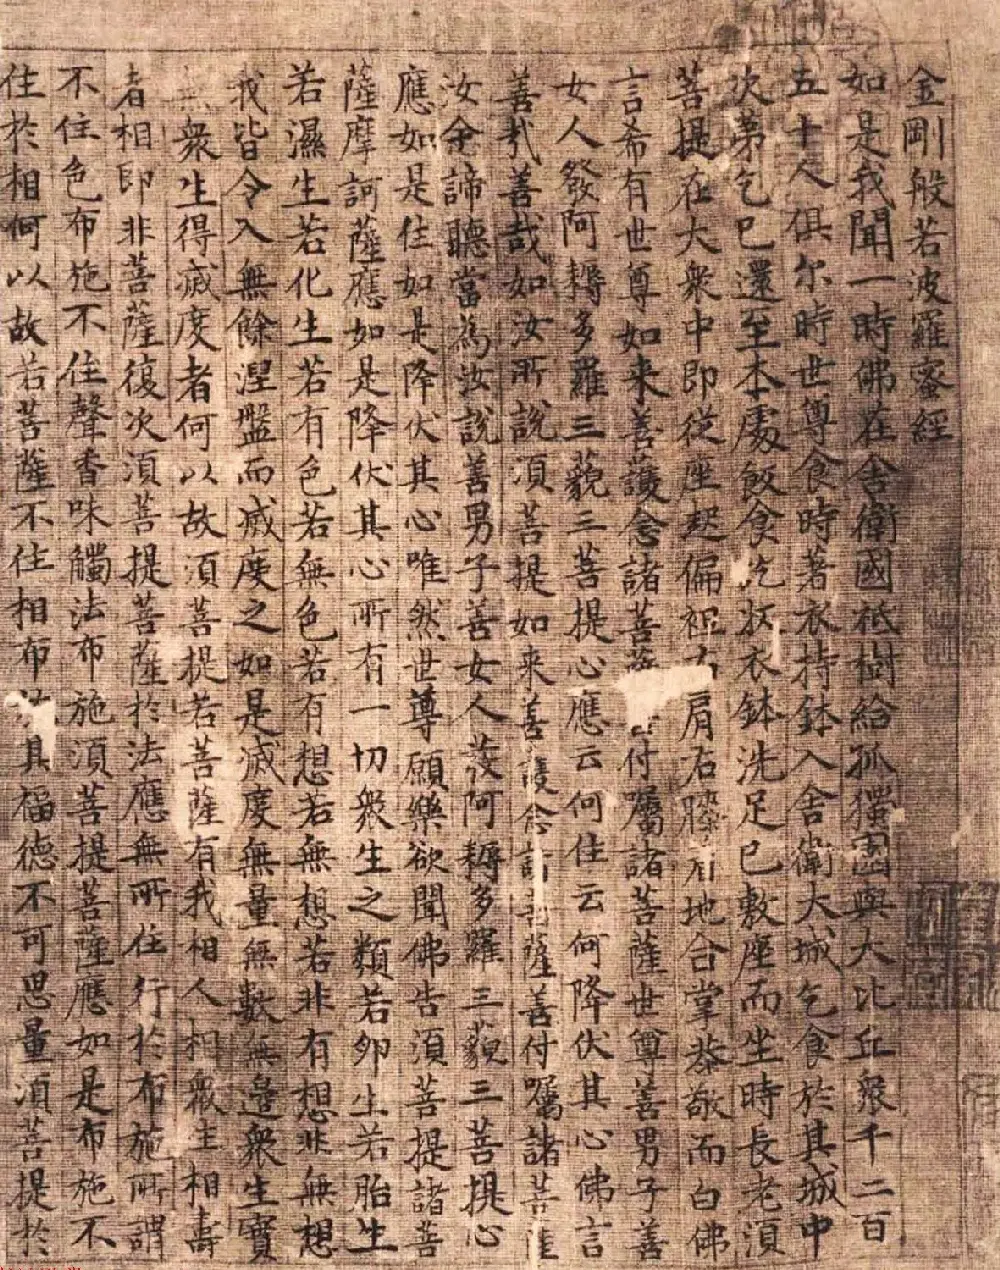 金剛般若波羅蜜經
如是我聞一時佛在舍衛國祇樹給孤獨園與大比丘衆千二百
五十人俱尔時世尊食時著衣持鉢入舍衛大城乞食於其城中
次第乞已還至本處飯食訖收衣鉢洗足已敷座而坐時長老須
菩提在大衆中即從座起偏袒右肩右膝着地合掌恭敬而白佛
言希有世尊如来善護念諸菩薩付囑諸菩薩世尊善男子善
女人發阿耨多羅三藐三菩提心應云何住云何降伏其心佛言
善哉善哉如汝所說須菩提如来善護念諸菩薩善付囑諸菩薩
汝今諦聽當為汝說善男子善女人發阿耨多羅三藐三菩提心
應如是住如是降伏其心唯然世尊願樂欲聞佛告須菩提諸菩
薩摩訶薩應如是降伏其心所有一切衆生之類若卵生若胎生
若濕生若化生若有色若無色若有想若無想若非有想非無想
我皆令入無餘涅盤而滅度之如是滅度無量無數無邊衆生實
無衆生得滅度者何以故須菩提若菩薩有我相人相衆生相壽
者相即非菩薩復次須菩提菩薩於法應無所住行於布施所謂
不住色布施不住聲香味觸法布施須菩提菩薩應如是布施不
住於相何以故若菩薩不住相布其福德不可思量須菩提於